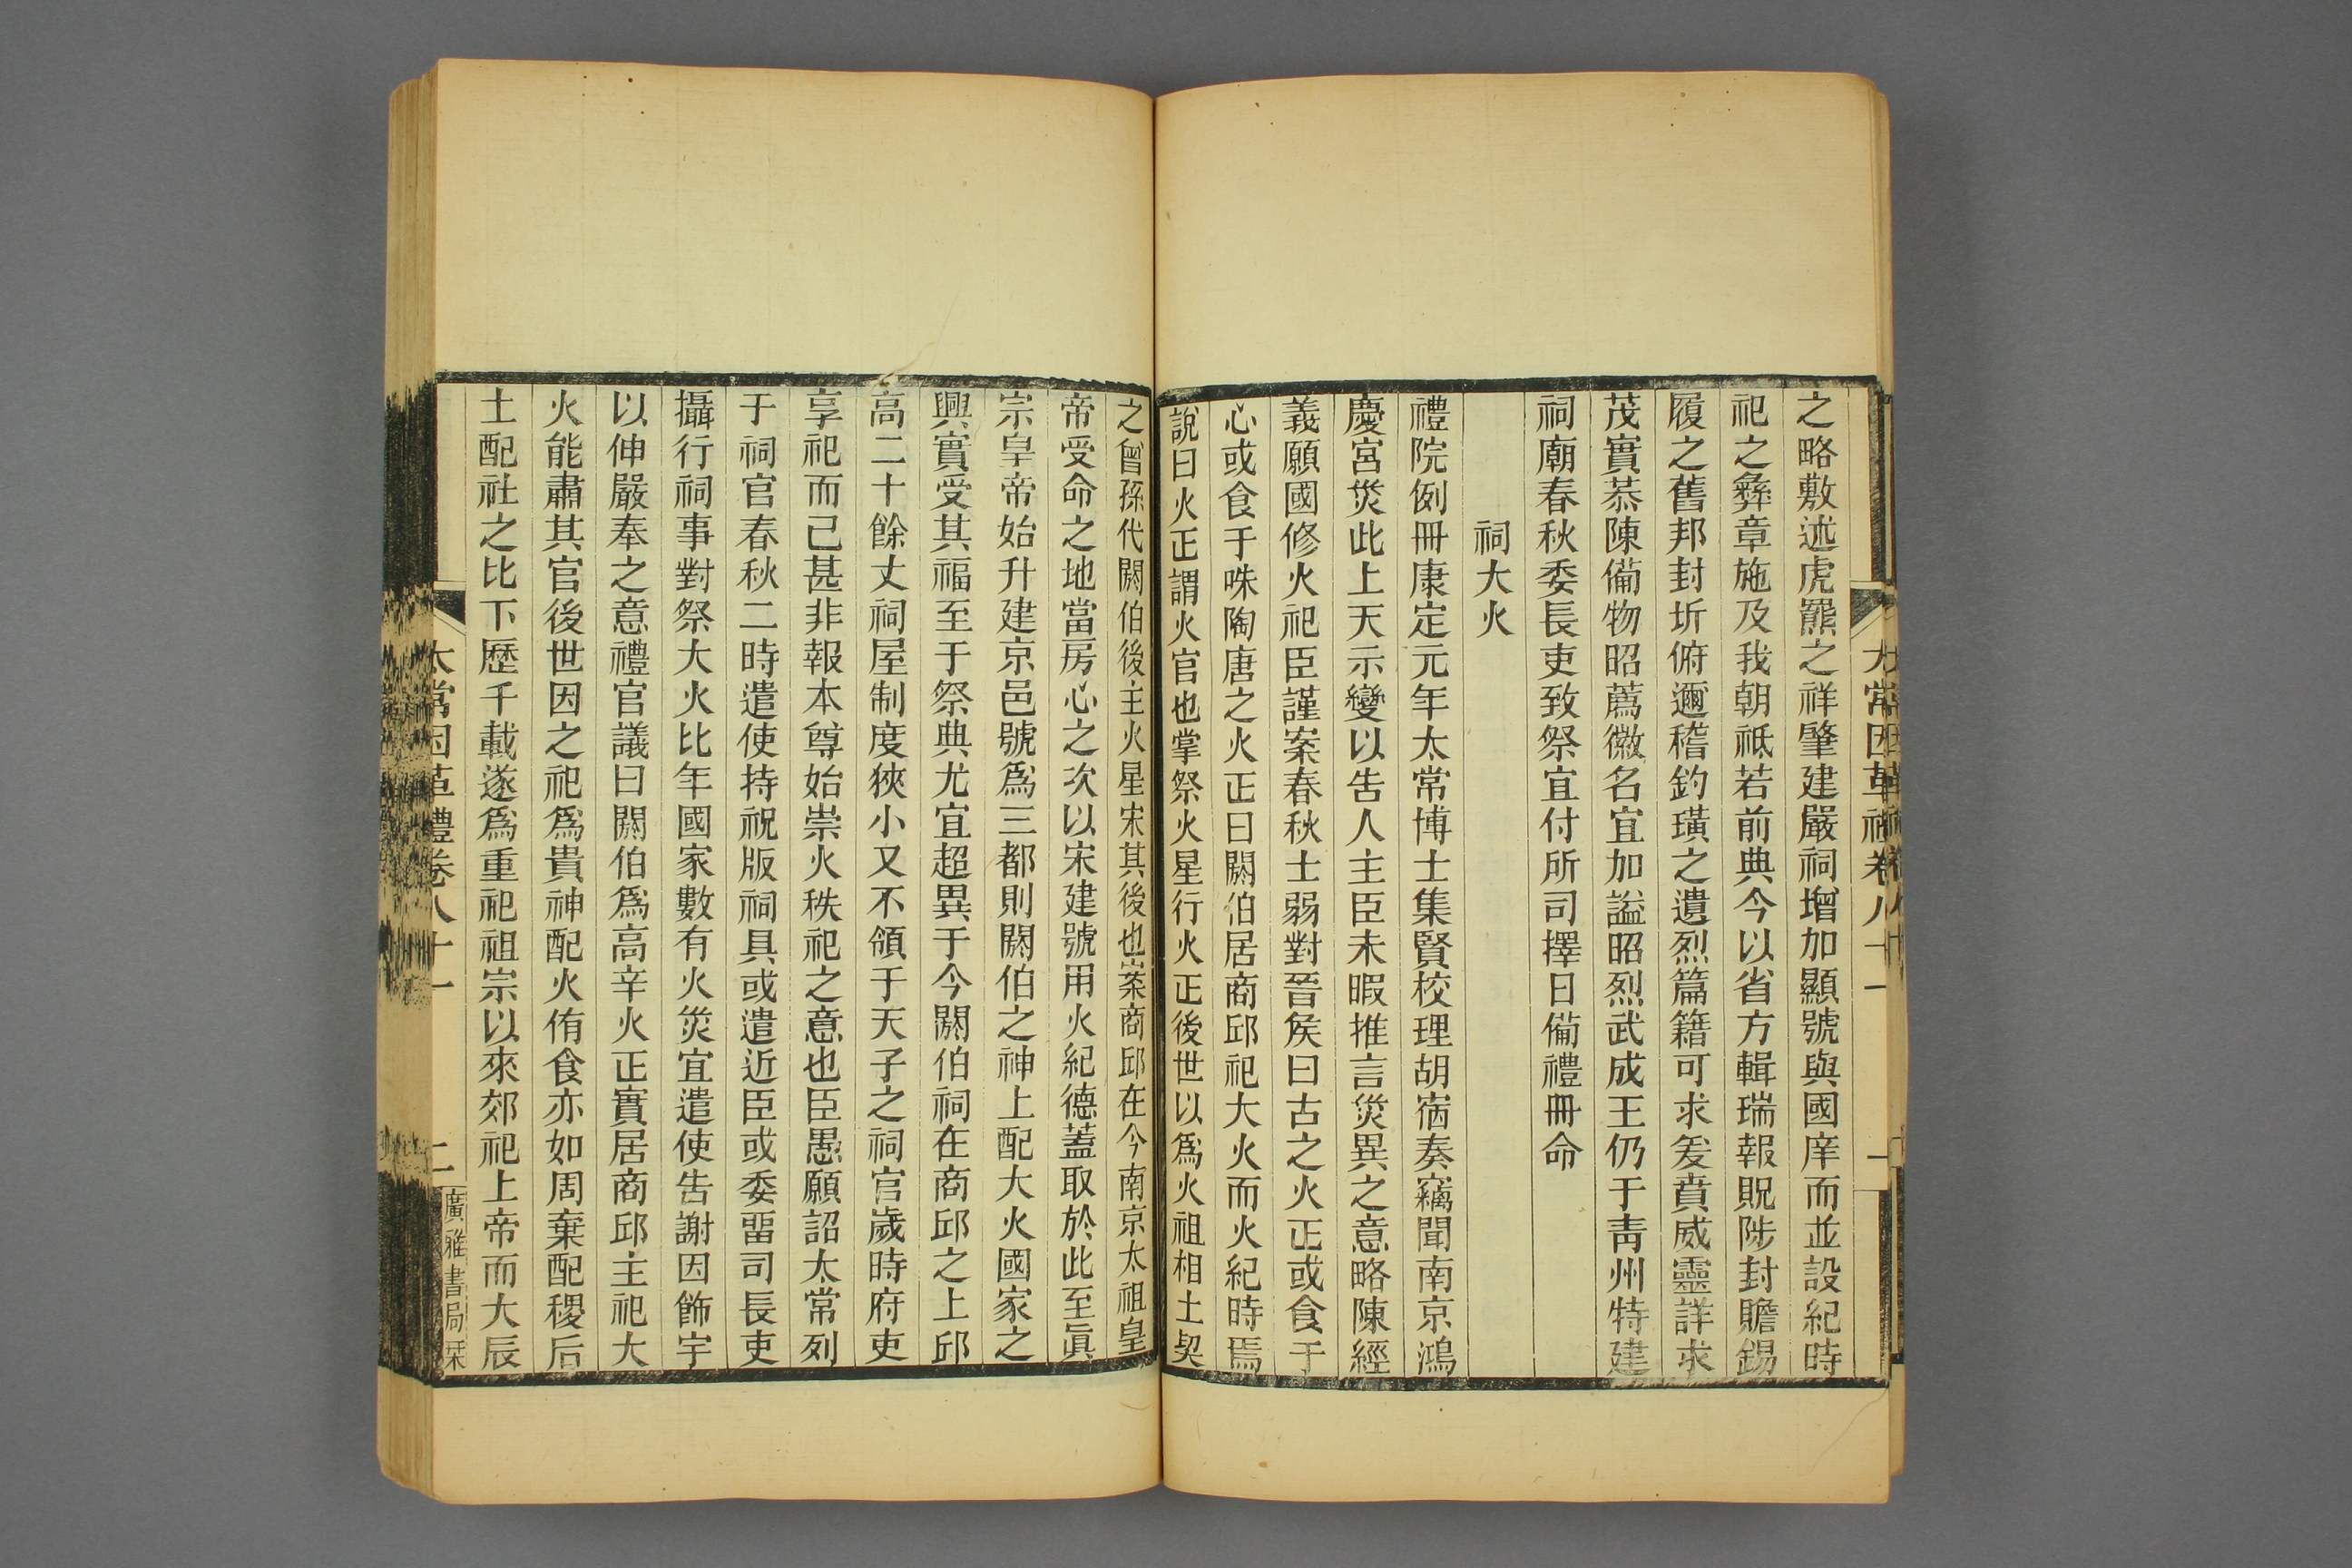 之略敷述虎羆之祥肇建嚴祠增加顯號與國庠而並設紀時
祀之彝章施及我朝祗若前典今以省方輯瑞報貺陟封贍錫
履之舊邦封圻俯邇稽釣璜之遺烈篇籍可求爰賁威靈詳求
茂實恭陳備物昭薦徽名宜加謚昭烈武成王仍于靑州特建
祠廟春秋委長吏致祭宜付所司擇日備禮冊命
祠大火
禮院例冊康定元年太常博士集賢校理胡宿奏竊聞南京鴻
慶宮災此上天示變以吿人主臣未暇推言災異之意略陳經
義願國修火祀臣謹案春秋士弱對晉矦曰古之火正或食于
心或食于咮陶唐之火正曰閼伯居商邱祀大火而火紀時焉
說曰火正謂火官也掌祭火星行火正後世以爲火祖相土契
之曾孫代閼伯後主火星宋其後也案商邱在今南京太祖皇
帝受命之地當房心之次以宋建號用火紀德蓋取於此至眞
宗皇帝始升建京邑號爲三都則閼伯之神上配大火國家之
興實受其福至于祭典尤宜超異于今閼伯祠在商邱之上邱
高二十餘丈祠屋制度狹小又不領于天子之祠官歲時府吏
享祀而已甚非報本尊始崇火秩祀之意也臣愚願詔太常列
于祠官春秋二時遣使持祝版祠具或遣近臣或委畱司長吏
攝行祠事對祭大火比年國家數有火災宜遣使吿謝因飾宇
以伸嚴奉之意禮官議曰閼伯爲高辛火正實居商邱主祀大
火能肅其官後世因之祀爲貴神配火侑食亦如周棄配稷后
土配社之比下歷千載遂爲重祀祖宗以來郊祀上帝而大辰
太常因革禮卷八十一
二
廣雅書局栞